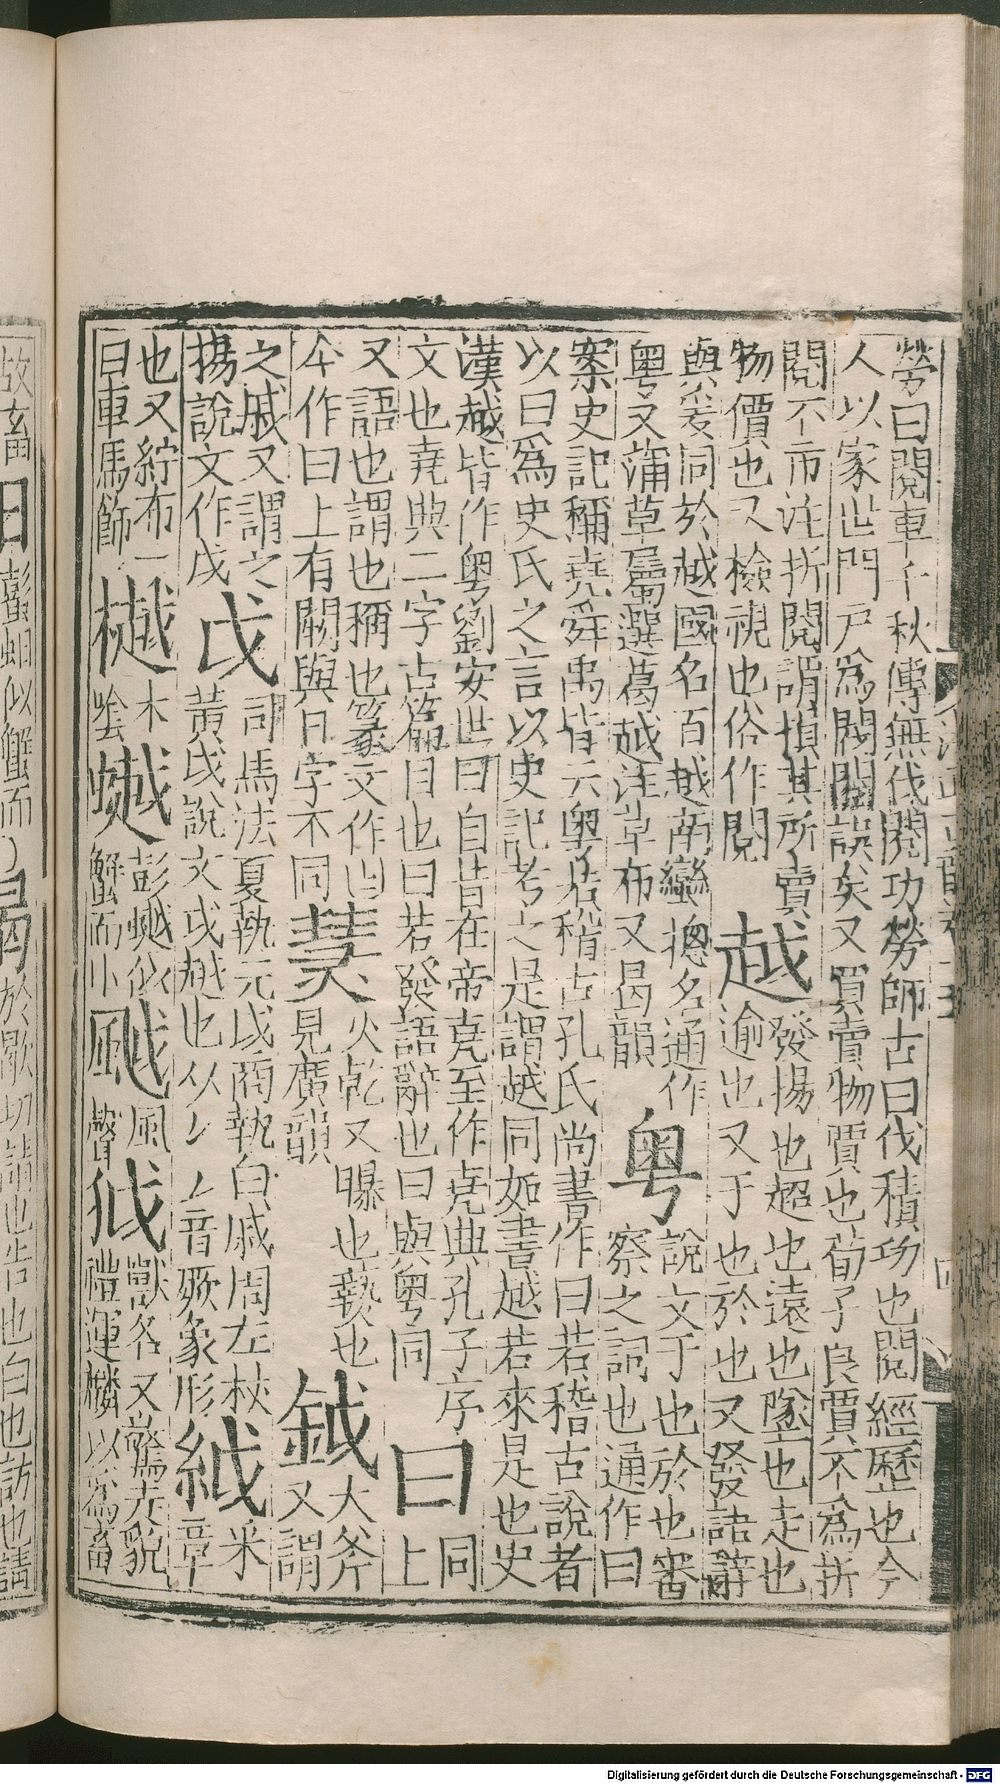 勞曰閱車千秋傳無伐閱功勞師古曰伐積功也閱經歷也今
人以家世門戶爲閥閱誤矣又買賣物賈也荀子良賈不爲折
閱不市注折閱謂損其所賣
物價也又檢視也俗作閱
越
發揚也超也遠也墜也走也
逾也又于也於也又發語辭
與爰同於越國名百越南蠻總名通作
粤又蒲草屬選葛越注草布又曷韻
粤
說文于也於也審
察之詞也通作曰
案史記稱堯舜禹皆云粤若稽古孔氏尚書作曰若稽古說者
以曰爲史氏之言以史記考之是謂越同如書越若來是也史
漢越皆作粤劉安世曰自昔在帝堯至作堯典孔子序
文也堯典二字古篇目也曰若發語辭也曰與粤同
曰
同
上
又語也謂也稱也篆文作
今作曰上有闕與日字不同
火乾又曝也爇也
見廣韻
鉞
大斧
又謂
之戚又謂之
揚說文作戉
戉
司馬法夏執元戉商執白戚周左杖
黃戉說文戉戉也从音厥象形
絾
釆
章
也又紵布一
曰車馬飾
樾
木
陰
䠯
彭似
蟹而小
䬂
風
聲
狘
獸名又驚走貌
禮運麟以爲畜